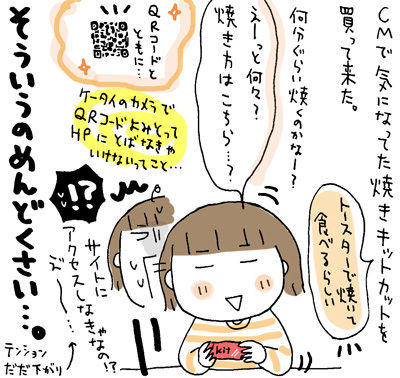 CMで気になってた焼きキットカットを
買って来た。
トースターで焼いて
食べるらしい
何分ぐらい焼くのかなー?
えーっと何々?
焼き方はこちら…?
QRコードと
ともに…
ケータイのカメラで
QRコードよみとって
HPにとばなきゃ
いけないってこと…
!?
サイトに
アクセスしなきゃなの!?
そういうのめんどくさい…。
テンション
だだ下がり
kit